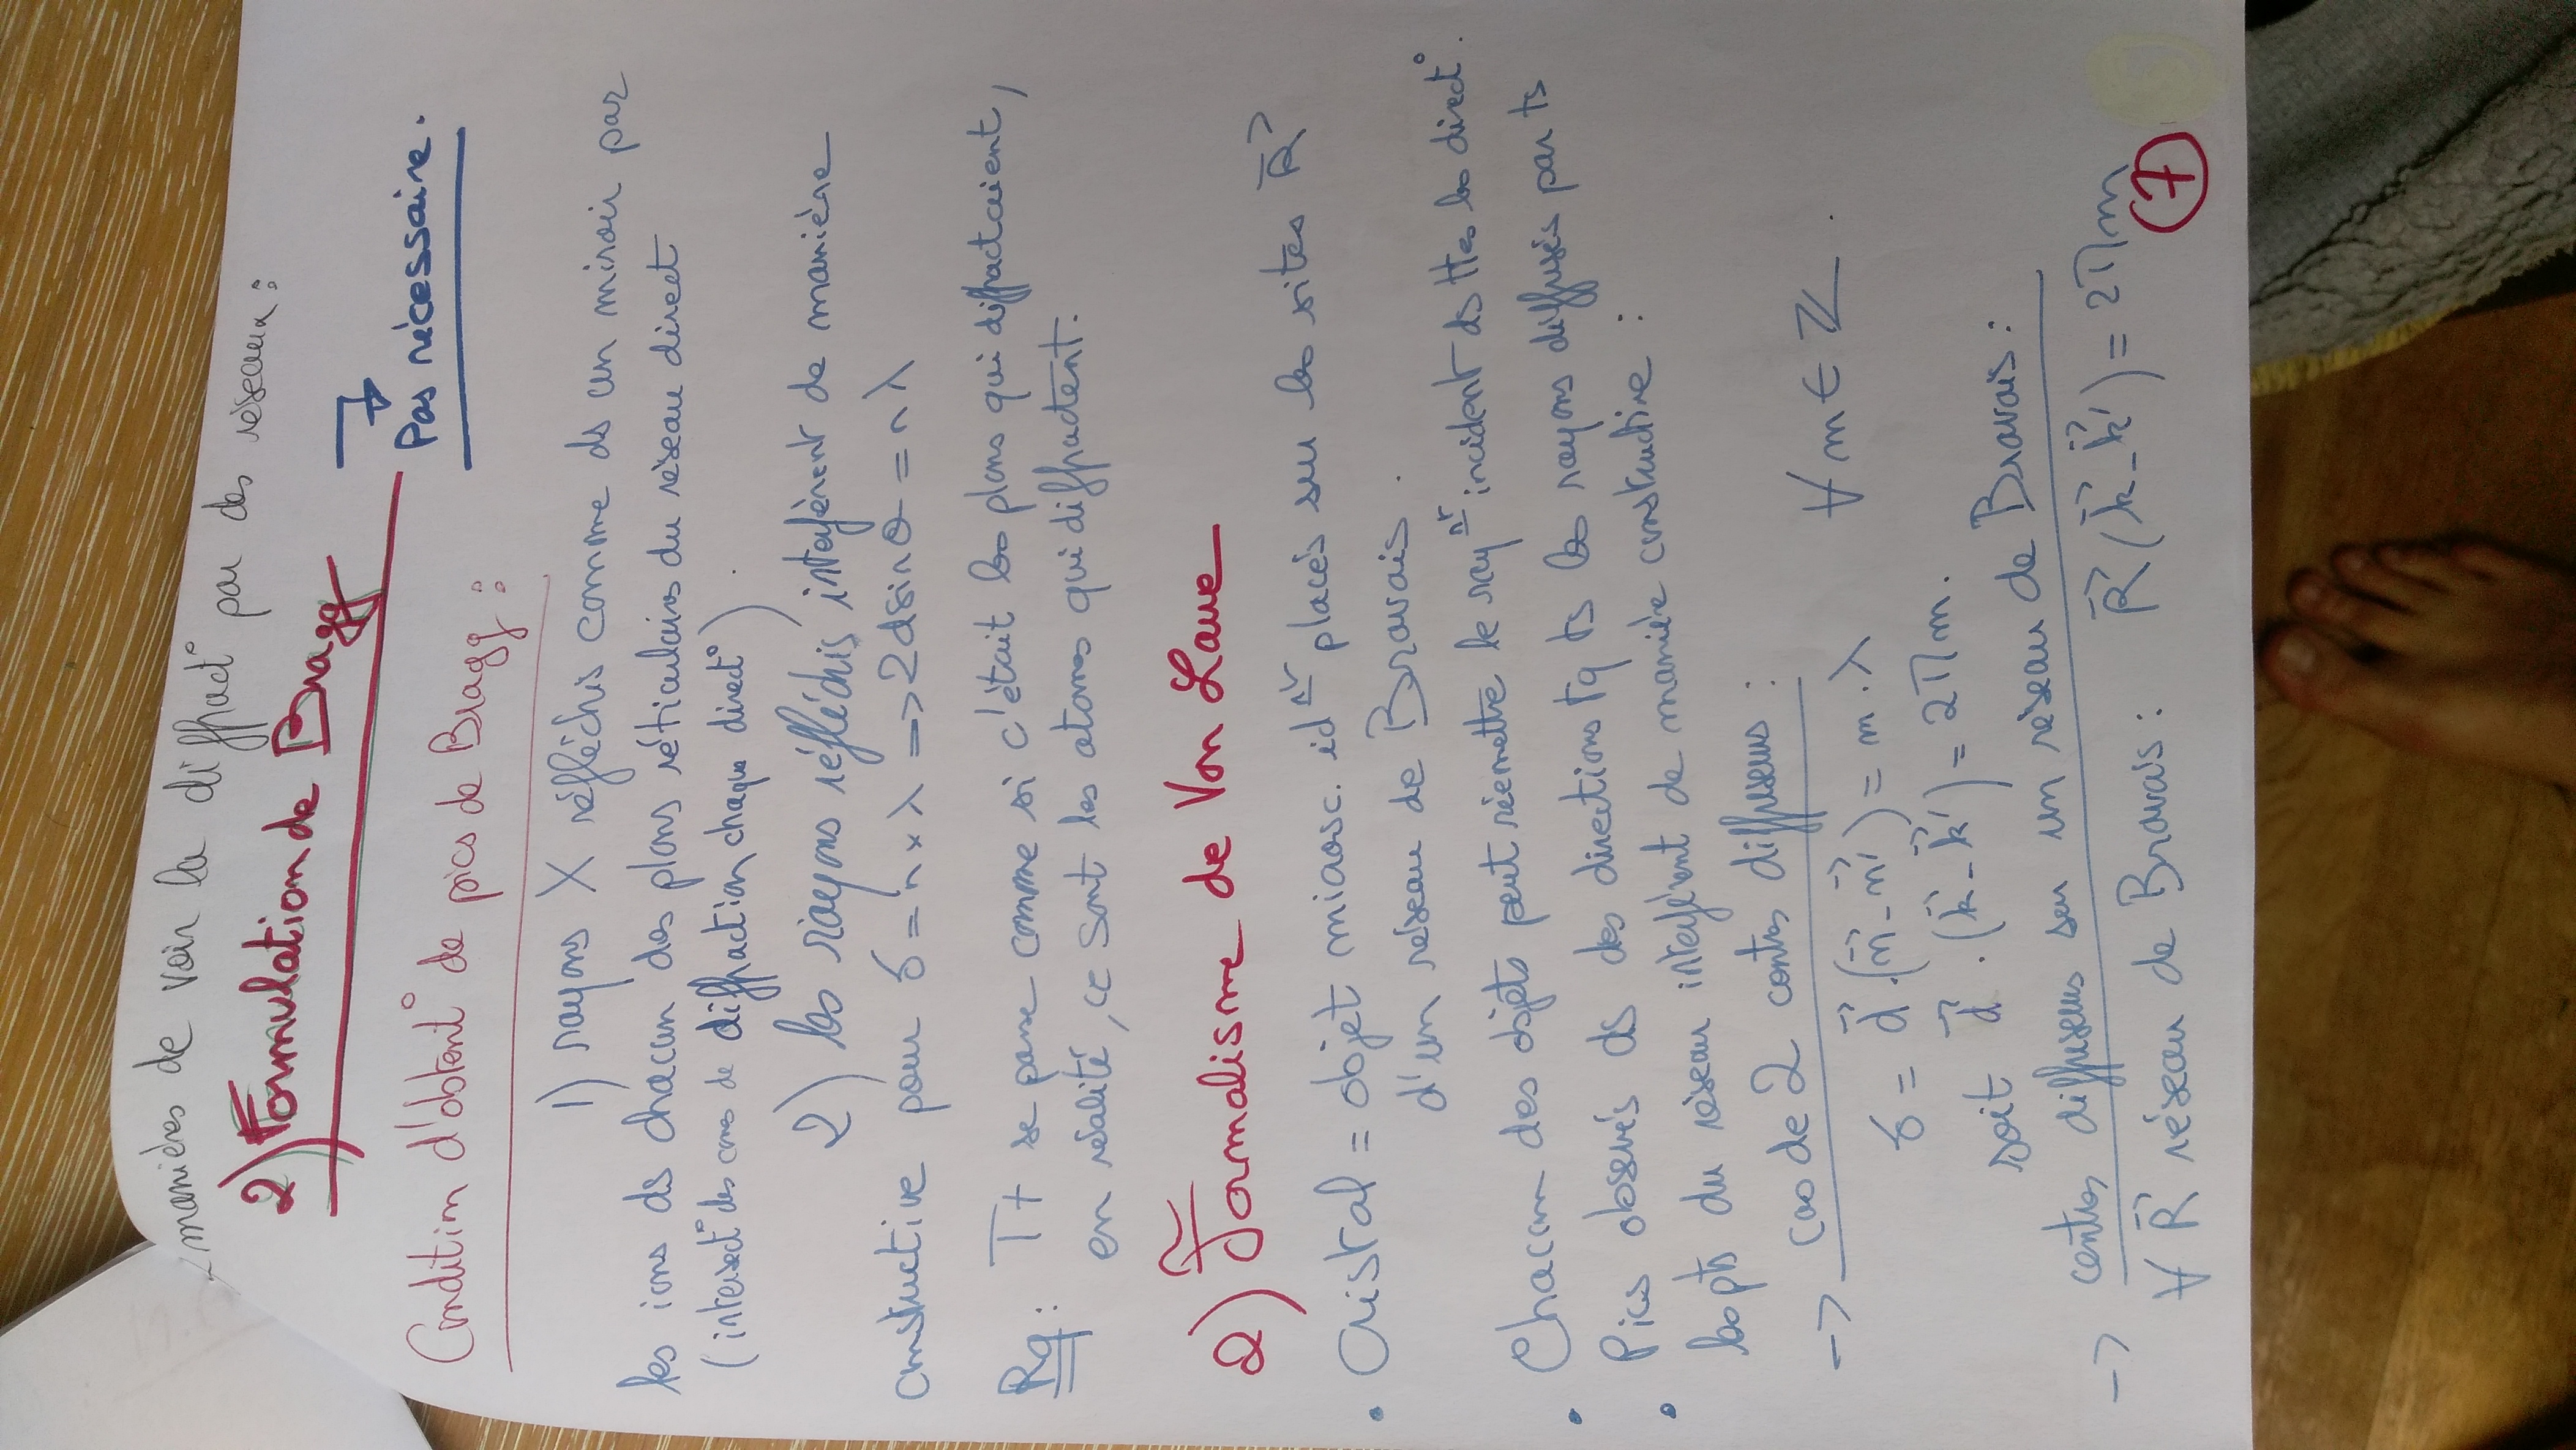 manières de voir la diffract° par des réseaux :
2) Formulation de Bragg
→ Pas nécessaire.
Condition d'obtent° de pics de Bragg :
1) rayons X réfléchis comme ds un miroir par
les ions ds chacun des plans réticulaires du réseau direct
(intersect° des cons de diffraction chaque direct°).
2) les rayons réfléchis interfèrent de manière
constructive pour δ = n × λ => 2dsinθ = nλ
Rq : Tt se passe comme si c'était les plans qui diffractaient,
en réalité, ce sont les atomes qui diffractent.
2) Formalisme de Von Laue
• Cristal = objet microsc. id^nt placés sur les sites R⃗
d'un réseau de Bravais.
• Chacun des objets peut réemettre le ray^nt incident ds ttes les direct°.
• Pics observés ds des directions tq ts les rayons diffusés par ts
les pts du réseau interfèrent de manière constructive :
-> cas de 2 centres diffuseurs :
δ = d⃗.(n⃗ - n⃗') = m.λ ∀ m ∈ ℤ.
soit d⃗.(k⃗ - k⃗') = 2πm.
-> centres diffuseurs sur un réseau de Bravais :
∀ R⃗ réseau de Bravais : R⃗(k⃗ - k⃗') = 2πm
7